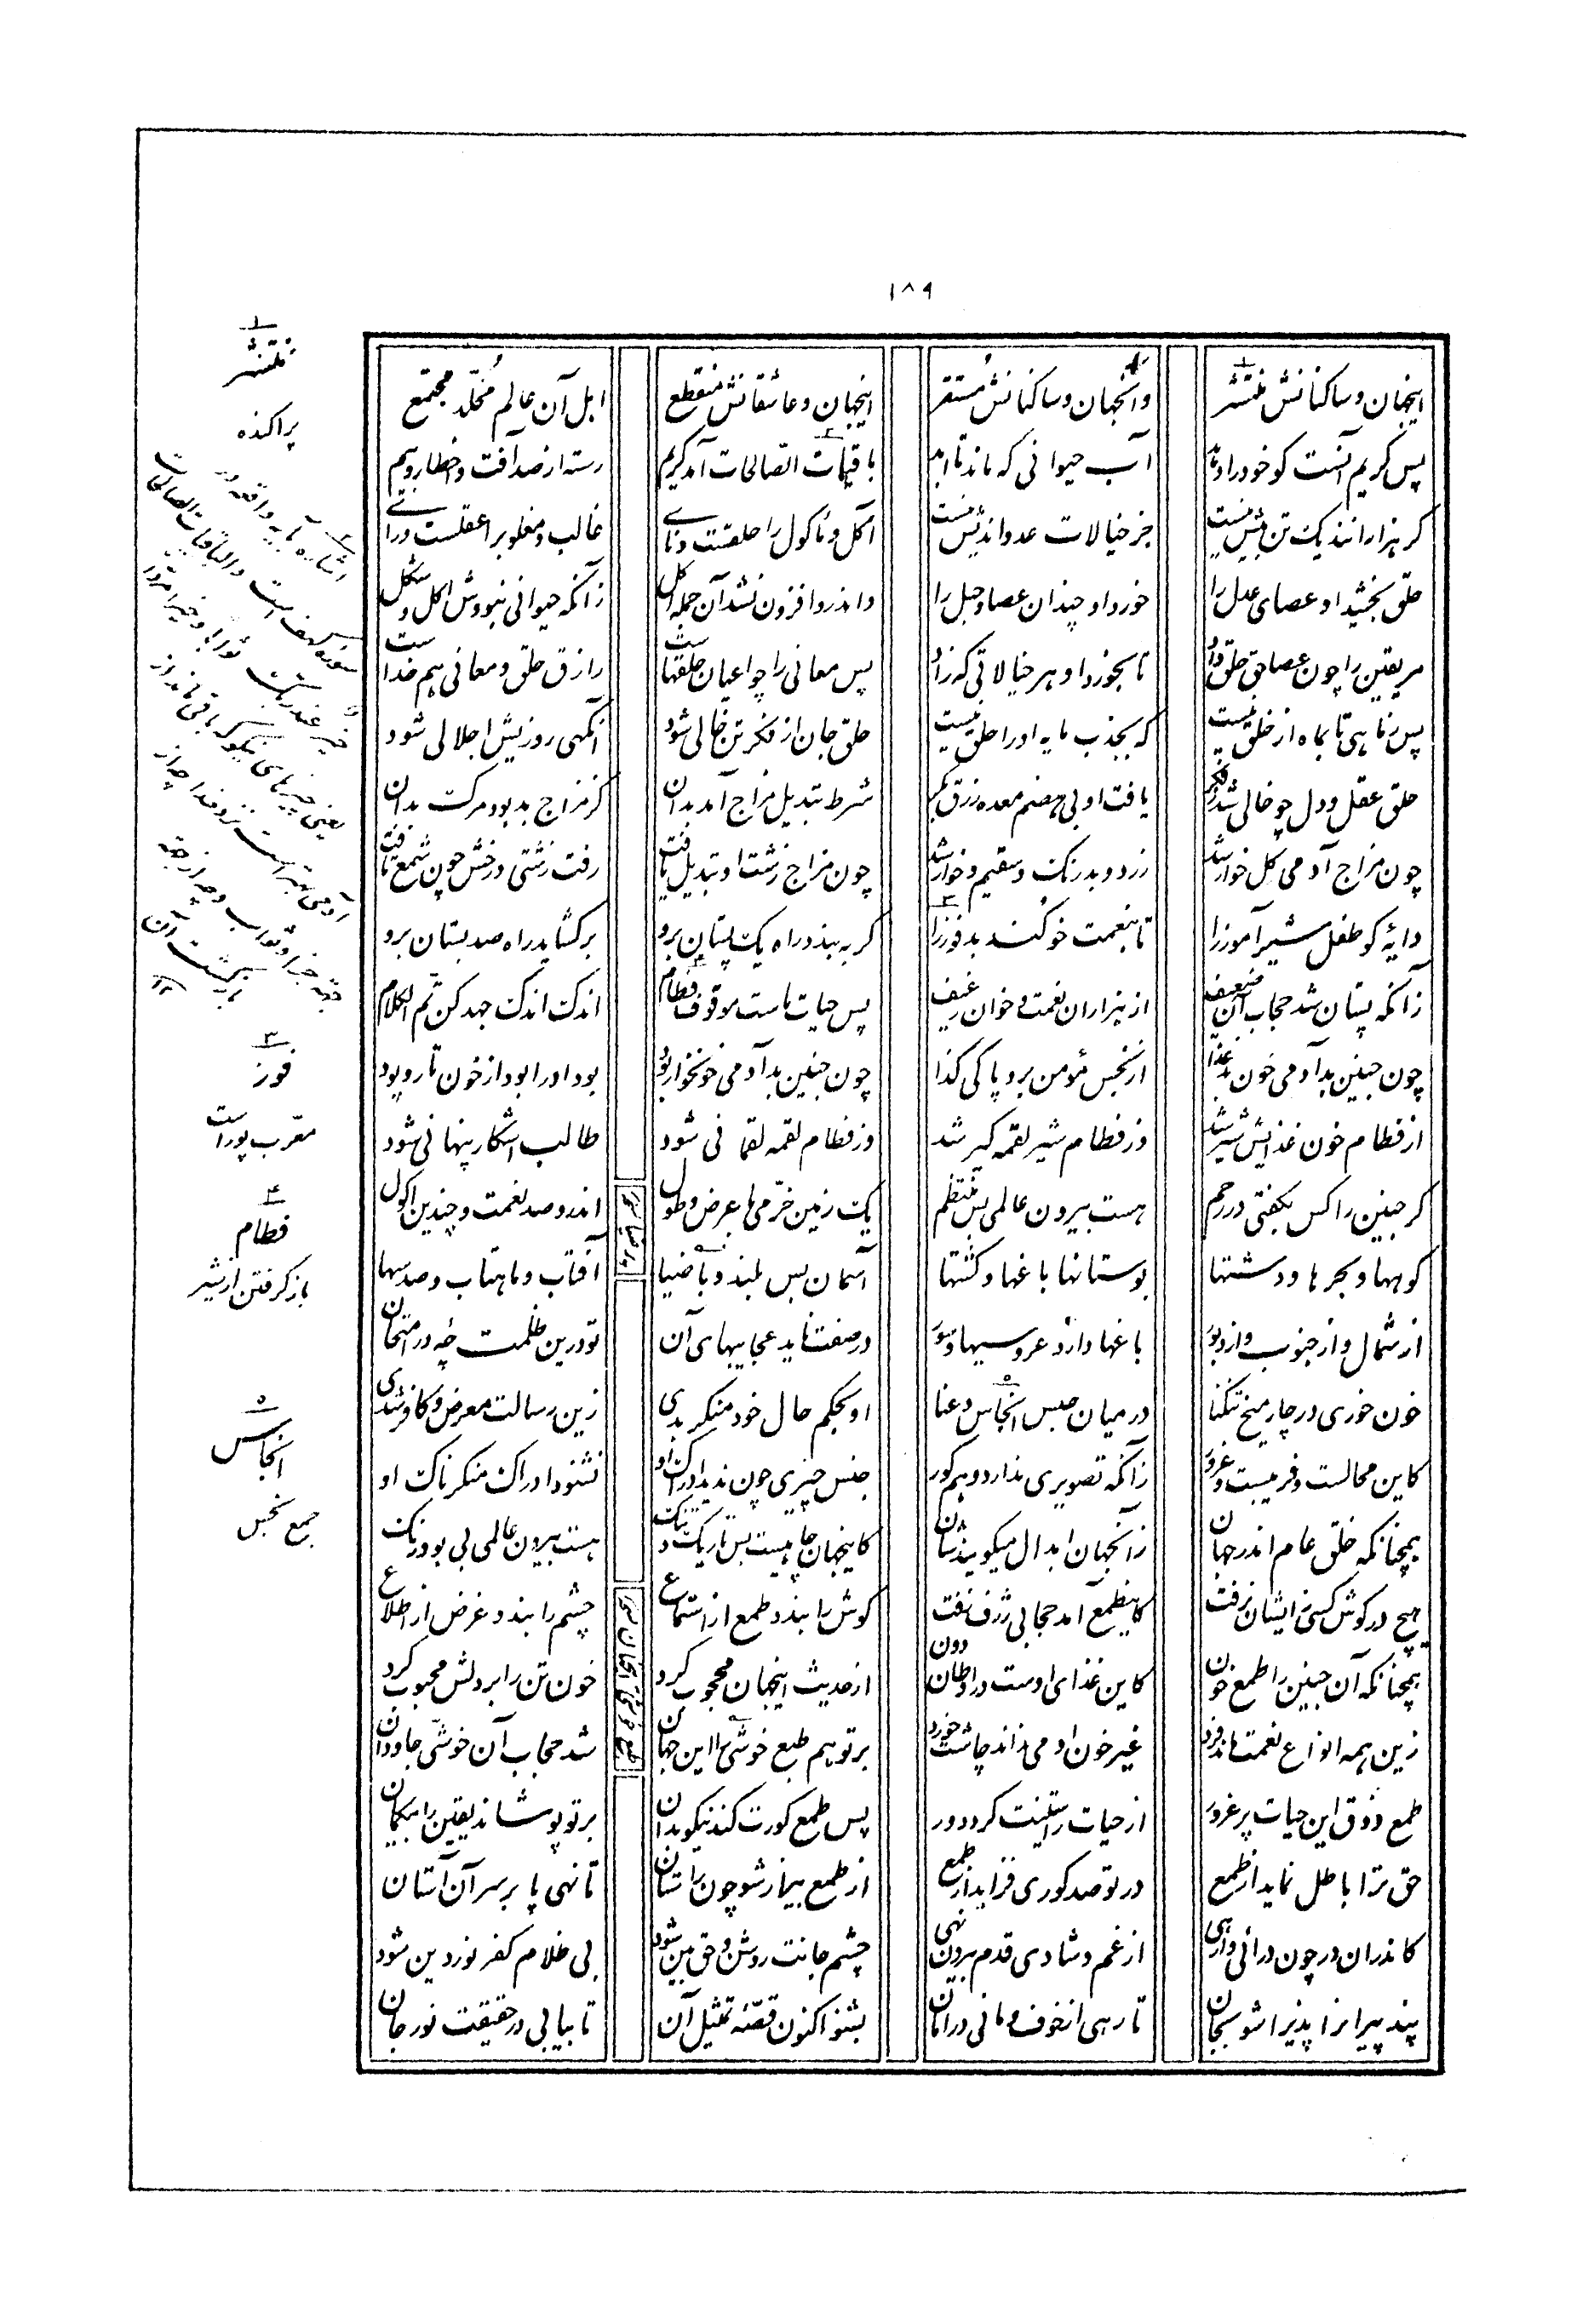 ۱۸۹
اینجهان و ساکنانش منتشر وآنجهان و ساکنانش مستقر اینجهان و عاشقانش منقطع اهل آن عالم مخلّد مجتمع
پس کریم آنست کو خود را دهد آب حیوانی که ماند تا ابد باقیات الصّالحات آمد کریم رسته از صد آفت و اخطار و بیم
گر هزارانند یک تن بیش نیست جز خیالات عدد اندیش نیست آکل و مأکول را حلقست و نای غالب و مغلوب را عقلست و رای
حلق بخشید او عصای عدل را خورد او چندان عصا و حبل را واندرو افزون نشد آن جمله اکل زآنکه حیوانی نبودش اکل و شکل
مر یقین را چون عصا حق حلق داد تا بخورد او هر خیالاتی که زاد پس معانی را چو اعیان حلقهاست رازق حلق و معانی هم خداست
پس ز ماهی تا بماه از خلق نیست که بجذب مایه او را حلق نیست حلق جان از فکر تن خالی شود آنگهی روزیش اجلالی شود
حلق عقل و دل چو خالی شد ز فکر یافت او بی هضم معده رزق بکر شرط تبدیل مزاج آمد بدان کز مزاج بد بود مرگ بدان
چون مزاج آدمی گل خوار شد زرد و بدرنگ و سقیم و خوار شد چون مزاج زشت او تبدیل یافت رفت زشتی و رخش چون شمع تافت
دایهٔ کو طفل شیرآموز را تا بنعمت خو کند بدفوز را گر ببندد راه یک پستان برو برگشاید راه صد بستان برو
زآنکه پستان شد حجاب آن ضعیف از هزاران نعمت و خوان و رغیف پس حیات ماست موقوف فطام اندک اندک جهد کن تمّ الکلام
چون جنین بد آدمی خون بد غذا از نجس مؤمن برو پاکی کذا چون جنین بد آدمی خونخوار بود بود او را بود از خون تار و پود
از فطام خون غذایش شیر شد وز فطام شیر لقمه گیر شد وز فطام لقمه لقمانی شود طالب اشکار پنهانی شود
گر جنین را کس بگفتی در رحم هست بیرون عالمی بس منتظم یک زمین خرّمی با عرض و طول اندرو صد نعمت و چندین اکول
کوهها و بحرها و دشتها بوستانها باغها و کشتها آسمان بس بلند و با ضیا آفتاب و ماهتاب و صد سها
از شمال و از جنوب و از دبور باغها دارد عروسیها و سور در صفت ناید عجایبهای آن تو درین ظلمت چهٔ در امتحان
خون خوری در چار میخ تنگنا در میان حبس انجاس و عنا او بحکم حال خود منکر بدی زین رسالت معرض و کافر شدی
کاین محالست و فریبست و غرور زآنکه تصویری ندارد وهم کور جنس چیزی چون ندید ادراک او نشنود ادراک منکرناک او
همچنانکه خلق عام اندر جهان زآنجهان ابدال میگویندشان کاینجهان چاهیست بس تاریک و تنگ هست بیرون عالمی بی بو و رنگ
هیچ در گوش کسی زایشان نرفت کاینطمع آمد حجابی ژرف زفت گوش را بندد طمع از استماع چشم را بندد غرض از اطلاع
همچنانکه آن جنین را طمع خون کاین غذای اوست در اوطان دون از حدیث اینجهان محجوب کرد خون تن را بر دلش محبوب کرد
زین همه انواع نعمت ماند فرد غیر خون او می نداند چاشت خورد بر تو هم طمع خوشی این جهان شد حجاب آن خوشی جاودان
طمع ذوق این حیات پر غرور از حیات راستینت کرد دور پس طمع کورت کند نیکو بدان بر تو پوشاند یقین را بیگمان
حق ترا باطل نماید از طمع در تو صد کوری فزاید از طمع از طمع بیزار شو چون راستان تا نهی پا بر سر آن آستان
کاندران در چون درآئی وارهی از غم و شادی قدم بیرون نهی چشم جانت روشن و حق بین شود بی ظلام کفر نور دین شود
پند پیرانرا پذیرا شو بجان تا رهی از خوف و مانی در امان بشنو اکنون قصّهٔ تمثیل آن تا بیابی در حقیقت نور جان
۱
منتشر
پراکنده
۲
اشاره بآیه واقعه در
سوره کهف است والباقیات الصالحات
خیر عند ربک ثوابا و خیر املا
یعنی چیزهای نیکو که باقی ماند از
آدمی بهتر است نزد خدا چه از
جهة جزا و ثواب و چه از جهة
بازگشت آن
۳
فوز
معرب پوز است
۴
فطام
باز گرفتن از شیر
۵
انجاس
جمع نجس